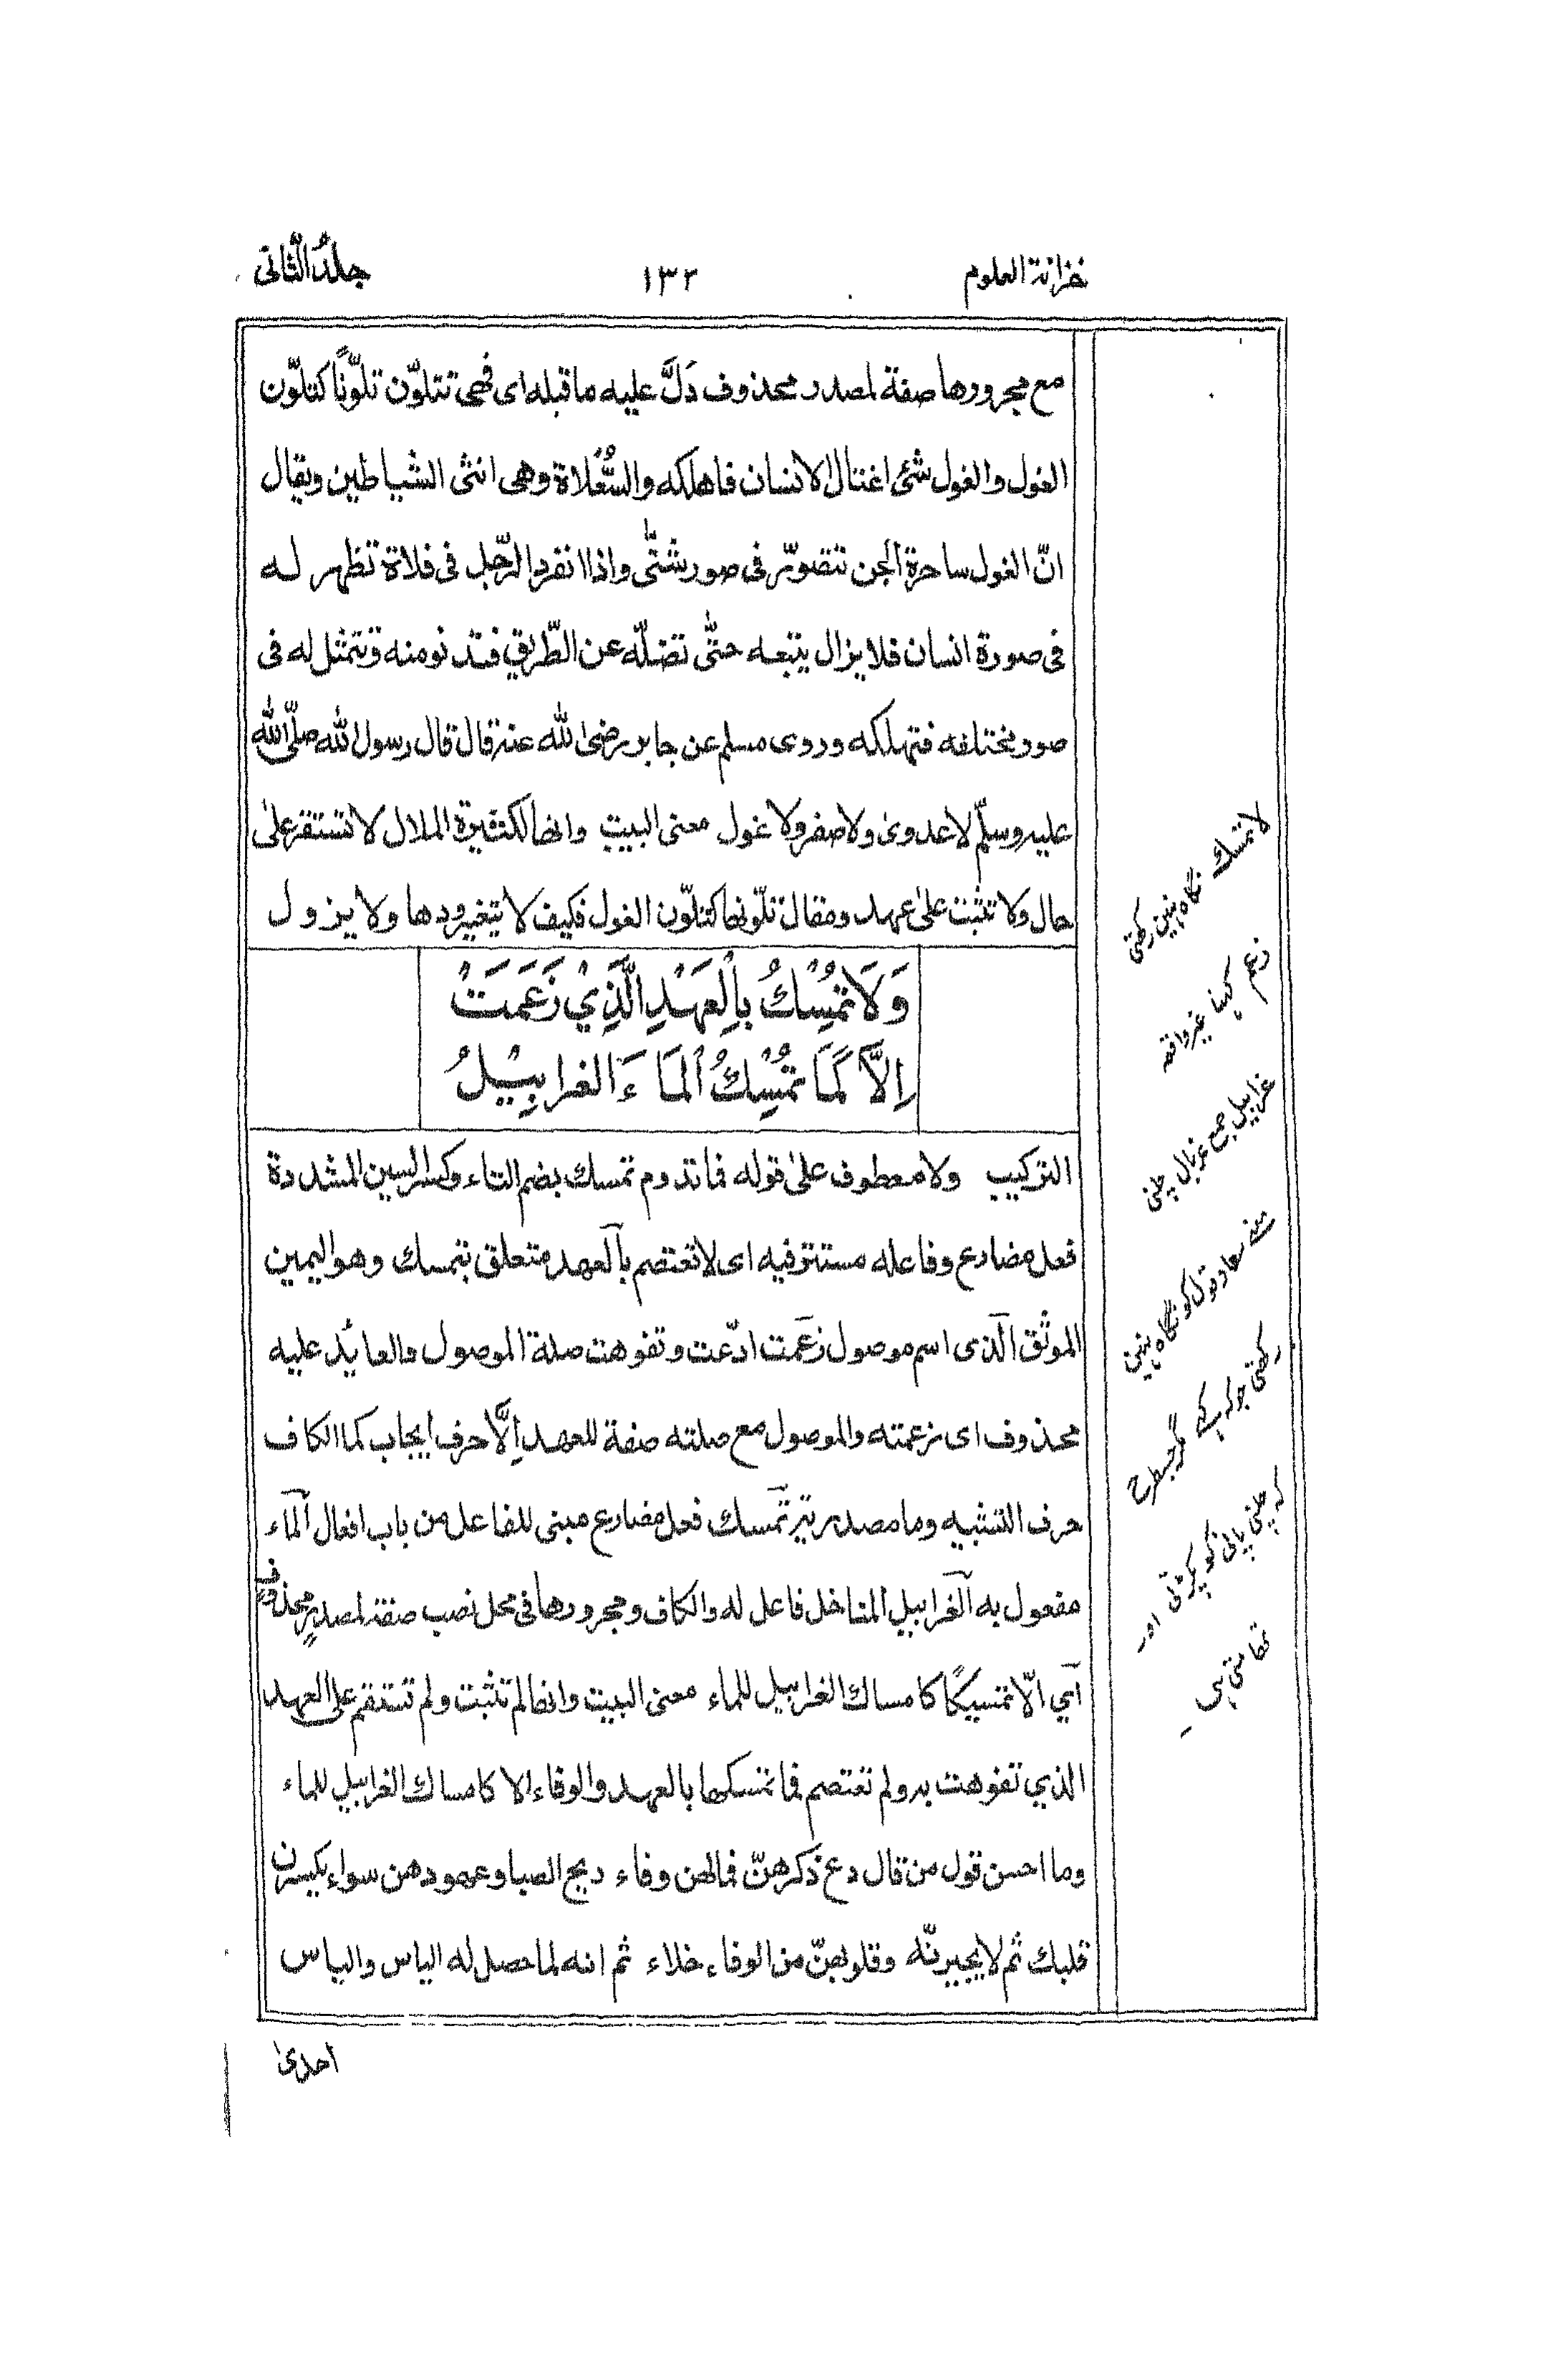 خزانة العلوم
١٣٢
جلدُ الثّانی
مع مجرورها صفة لمصدر محذوف دَلَّ علیه ماقبله ای فهی تتلوّن تلوّناً کتلوّن
الغول والغول شئ اغتال الانسان فاهلکه والسُّعْلاة وهی انثی الشیاطین ویقال
انّ الغول ساحرة الجن تتصوّر فی صور شتّٰی واذا انفرد الرّجل فی فلاة تظهر له
فی صورة انسان فلا یزال یتبعه حتّٰی تضلّه عن الطّریق فتدنو منه وتتمثل له فی
صور مختلفه فتهلکه وروی مسلم عن جابر رضی الله عنه قال قال رسول الله صلّی الله
علیه وسلّم لاعدوی ولاصفر ولا غول معنی البیت وانها لکثیرة الملال لا تستقر علیٰ
حال ولا تثبت علیٰ عهد ومقال تلّونها کتلّون الغول فکیف لا یتغیر ودها ولا یزول
وَلَا تُمْسِكُ بِالْعَهَدِ الَّذِيْ زَعَمَتْ
اِلاَّ كَمَا تُمْسِكُ الْمَاءَ الغرابِيْلُ
الترکیب ولا معطوف علیٰ قوله فما تدوم تمسك بضم التاء وکسر السین المشددة
فعل مضارع وفاعله مستتر فیه ای لا تعتصم بالعهد متعلق بتمسك وهو الیمین
الموثق الّذی اسم موصول زعمت ادّعت وتفوهت صلة الموصول والعائد علیه
محذوف ای زعمته والموصول مع صلته صفة للعهد اِلَّا حرف ایجاب کما الکاف
حرف التشبیه وما مصدریة تمسك فعل مضارع مبنی للفاعل من باب افعال الماء
مفعول به الغرابیل المناخل فاعل له والکاف ومجرورها فی محل نصب صفة لمصدرٍ محذوفٍ
ای الّا تمسیکًا کامساك الغرابیل للماء معنی البیت وانها لم تثبت ولم تستقم علی العهد
الذی تفوهت به ولم تعتصم فما تمسکها بالعهد والوفاء الا کامساك الغرابیل للماء
وما احسن قول من قال دع ذکرهنّ فما لهن وفاء ریح الصبا وعهودهن سواء یکسرن
قلبك ثم لا یجبرنّه وقلوبهنّ من الوفاء خلاء ثم انه لما حصل له الیاس والیاس
احدیٰ
لا تمسك نگاه نہین رکھتی
زعم کہنا غیر واقعہ
غرابیل جمع غربال چلنی
معنے سعاد قول کو نگاہ نہین
رکھتی جو کہ ہے مگر جسطرح
کہ چلنی پانی کو پکڑتی اور
تھامتی ہی ۔